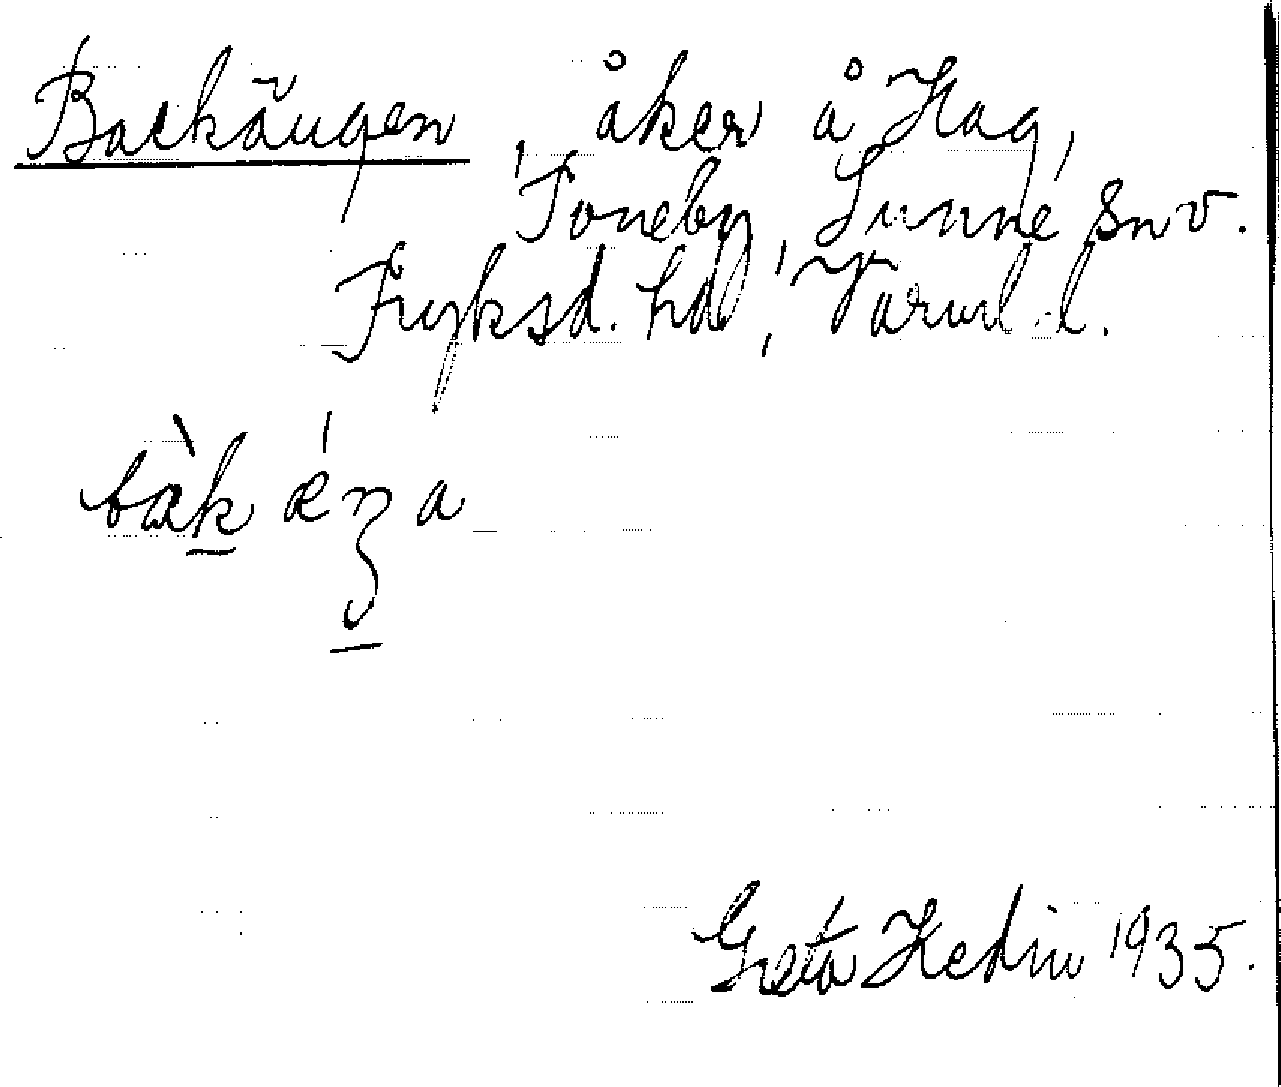 Backängen, åker å Hag,
Toneby, Sunne sn v.
Fryksd. hd, Värml. l.
bàk ä́ŋa
Greta Hedin 1935.